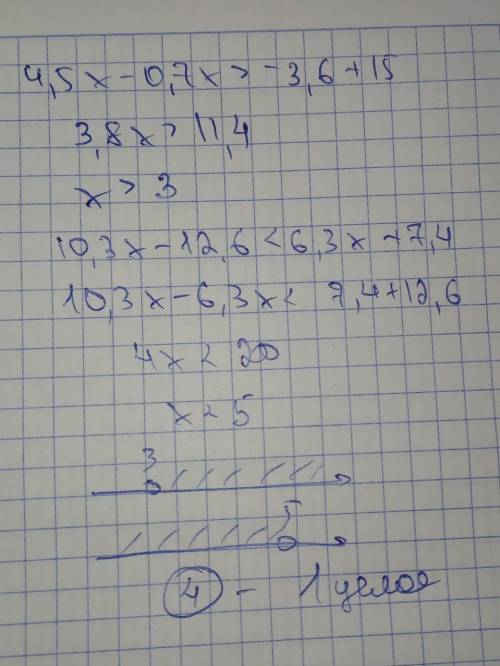 4,5x - 0,7x > -3,6 + 15
3,8x > 11,4
x > 3
10,3x - 12,6 < 6,3x + 7,4
10,3x - 6,3x < 7,4 + 12,6
4x < 20
x < 5
3
5
4 - 1 целое